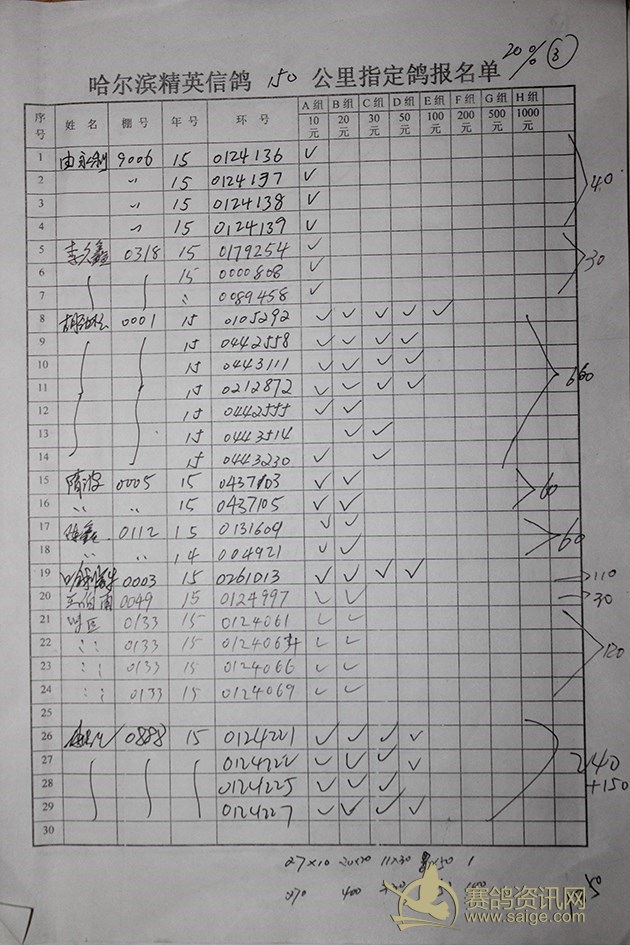 20% ③
哈尔滨精英信鸽 150 公里指定鸽报名单
序号 姓名 棚号 年号 环号 A组10元 B组20元 C组30元 D组50元 E组100元 F组200元 G组500元 H组1000元
1 由永利 9006 15 0124136 ✓
2 〃 15 0124137 ✓
3 〃 15 0124138 ✓ 40
4 〃 15 0124139 ✓
5 李久鑫 0318 15 0179254 ✓
6 15 0000808 ✓ 30
7 〃 0089458 ✓
8 0001 15 0105292 ✓ ✓ ✓ ✓ ✓
9 15 0442558 ✓ ✓ ✓ ✓
10 15 0443111 ✓ ✓ ✓ ✓
11 15 0212872 ✓ ✓ ✓ ✓ 660
12 15 0442555 ✓ ✓
13 15 0443514 ✓ ✓
14 15 0443230 ✓ ✓
15 0005 15 0437103 ✓ ✓
16 〃 〃 15 0437105 ✓ ✓ 60
17 0112 15 0131609 ✓ ✓
18 〃 〃 14 004921 ✓ ✓ 60
19 0003 15 0261013 ✓ ✓ ✓ ✓ 110
20 0049 15 0124997 ✓ ✓ 30
21 0133 15 0124061 ✓ ✓
22 〃 0133 15 ✓ ✓ 120
23 〃 0133 15 0124066 ✓ ✓
24 〃 0133 15 0124069 ✓ ✓
25
26 0888 15 0124221 ✓ ✓ ✓ ✓
27 0124222 ✓ ✓ ✓ ✓ 240
28 0124225 ✓ ✓ ✓ +150
29 0124227 ✓ ✓ ✓ ✓
30
27×10 20×20 11×30 1
270 400 50
赛鸽资讯网
www.saige.com